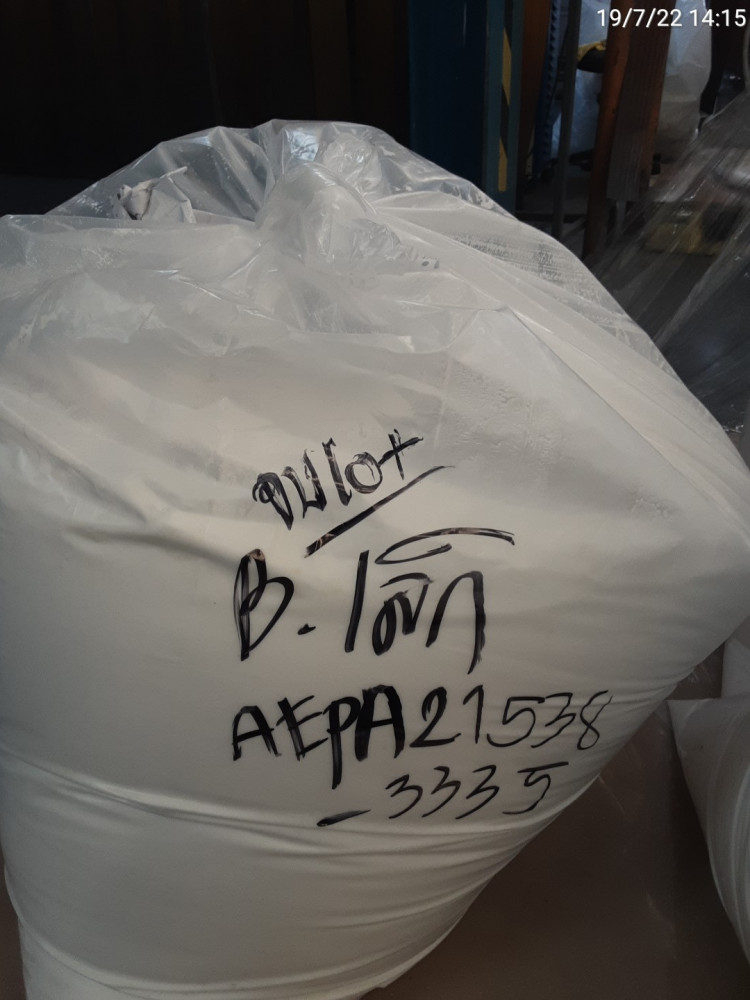 19/7/22 14:15
จบ lot
B. เล็ก
AEPA21538
-3335